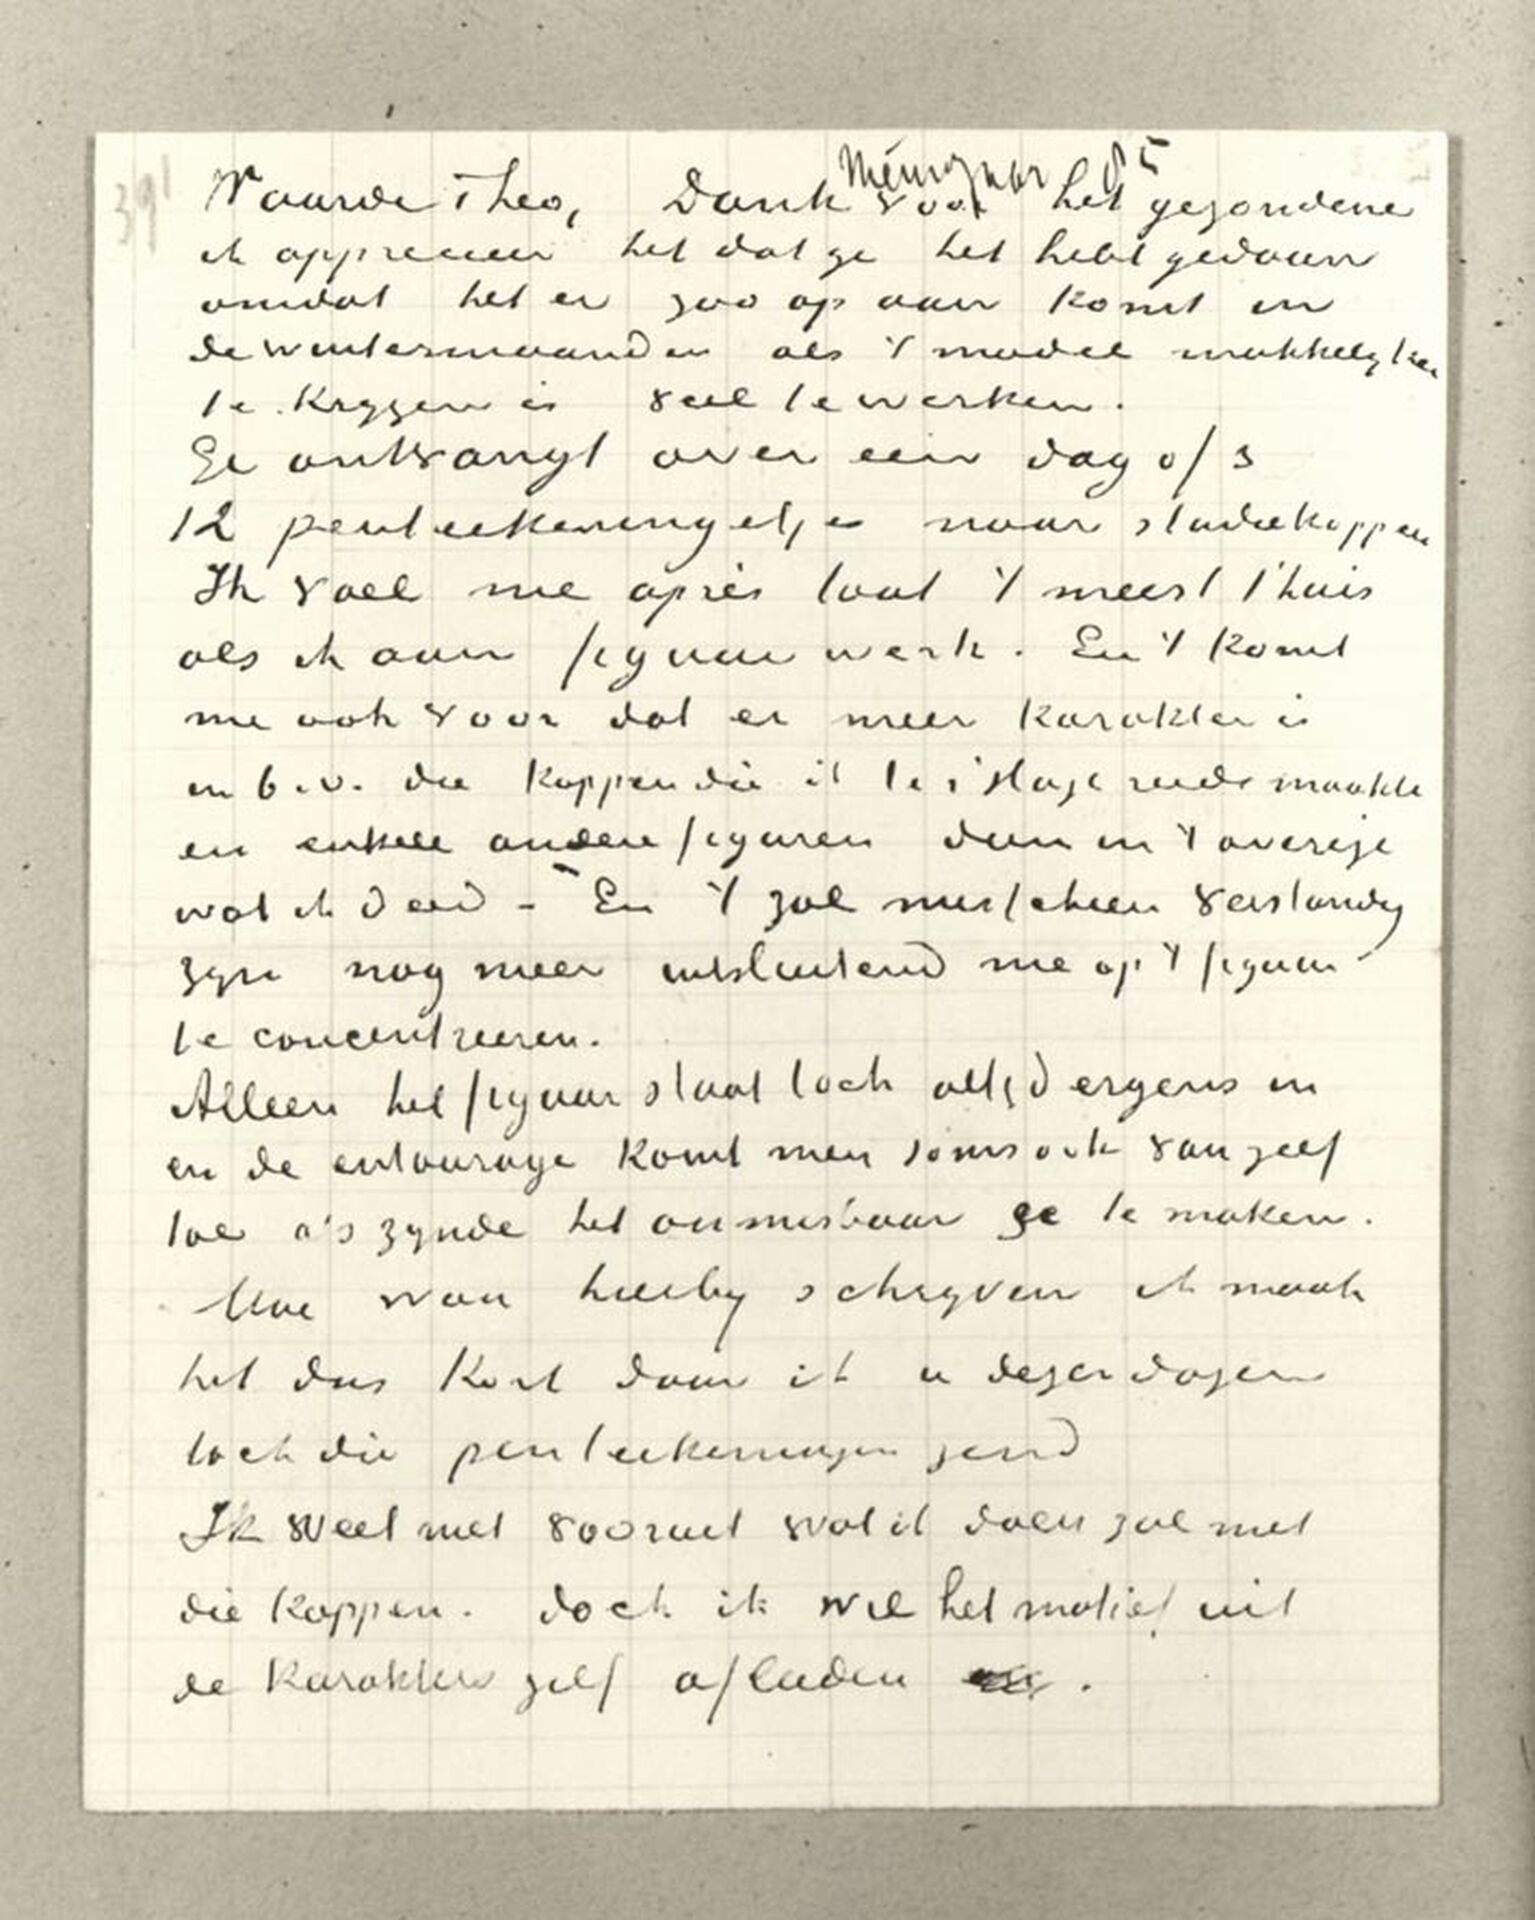 391
Waarde Theo, Dank voor het gezondene
ik apprecieer het dat ge het hebt gedaan
omdat het er zoo op aan komt in
de wintermaanden als 't model makkelyker
te krygen is veel te werken.
Ge ontvangt over een dag of 3
12 penteekeningetjes naar studiekoppen
Ik voel me après tout 't meest t'huis
als ik aan figuur werk. En 't komt
me ook voor dat er meer karakter is
in b.v. die koppen die ik te 's Hage reeds maakte
en enkele andere figuren dan in 't overige
wat ik deed – En 't zal misschien verstandig
zyn nog meer uitsluitend me op 't figuur
te concentreeren.
Alleen het figuur staat toch altyd ergens in
en de entourage komt men soms ook van zelf
toe als zynde het onmisbaar ze te maken.
Moe wou hierby schryven ik maak
het dus kort daar ik u dezer dagen
toch die penteekeningen zend
Ik weet niet vooruit wat ik doen zal met
die koppen. doch ik wil het motief uit
de karakters zelf afleiden .